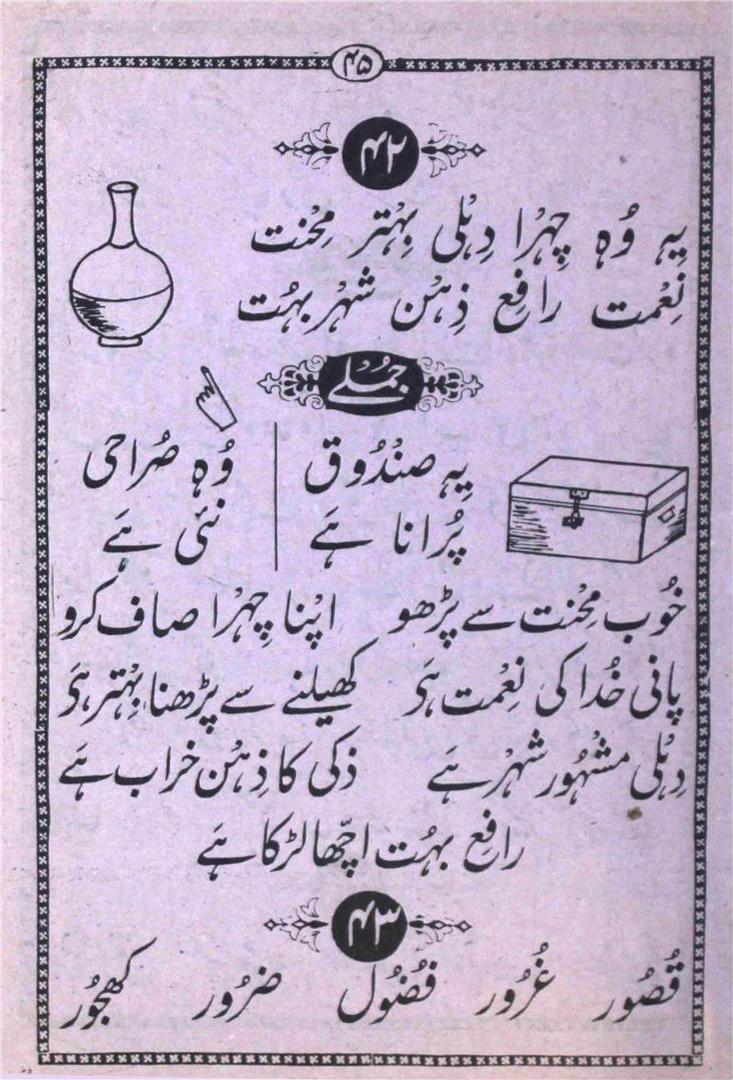 ۴۵
۴۲
یہ وُہ چِہْرا دِہْلی بِہْتر مِحْنت
نِعْمت رافِع ذِہْن شہْر بہُت
جُملے
یِہ صنْدُوق
پُرانا ہَے
وُہ صُراحی
نئی ہَے
خُوب مِحْنت سے پڑھو اپْنا چِہْرا صاف کرو
پانی خُدا کی نِعْمت ہَے کھیلنے سے پڑھنا بِہْتر ہَے
دِہْلی مشْہُور شہْر ہَے ذکی کا ذِہْن خراب ہَے
رافِع بہُت اچّھا لڑکا ہَے
۴۳
قُصُور غُرُور فُضُول ضرُور کھجُور